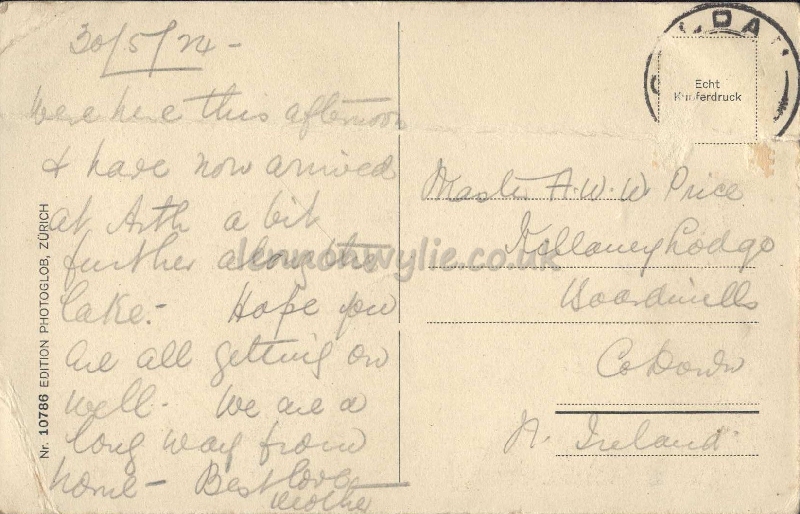 30/5/24 -
Were here this afternoon
& have now arrived
at Arth a bit
further along the
lake. - Hope you
are all getting on
well - We are a
long way from
home - Best love
Mother
Nr. 10786 EDITION PHOTOGLOB, ZÜRICH
Echt
Kupferdruck
Master A.W.W Price
Killaney Lodge
Boardmills
Co Down
N. Ireland.
lennonwylie.co.uk